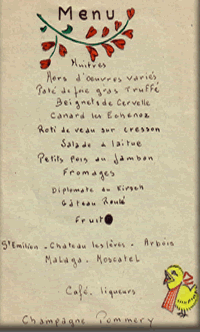 Menu
Huitres
Hors d'œuvres variés
Paté de foie gras Truffé
Beignets de Cervelle
Canard les Echenoz
Roti de veau sur cresson
Salade a laitue
Petits pois au Jambon
Fromages
Diplomate au Kirsch
Gâteau Roulé
Fruits
St Emilion - Chateau les lèves - Arbois
Malaga - Moscatel
Café - liqueurs
Champagne Pommery